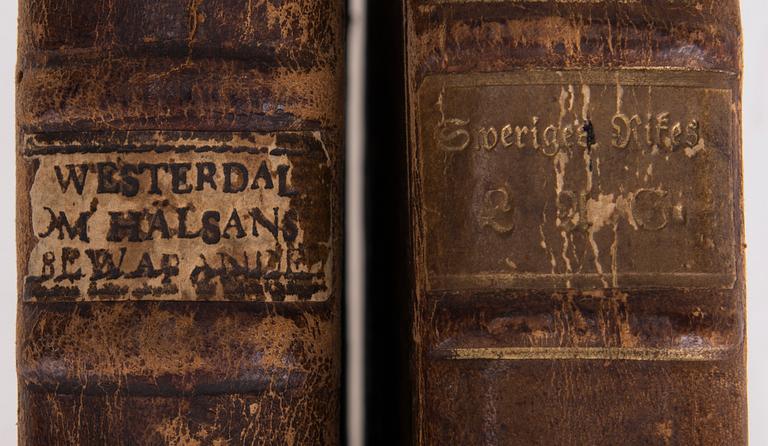 WESTERDAL
OM HÄLSANS
BEWARANDE
Sweriges Rikes
L A G